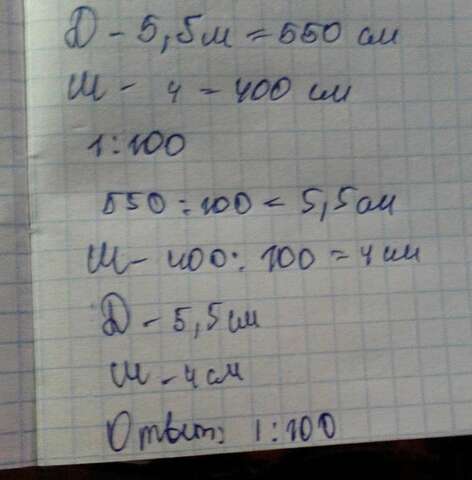 Д - 5,5м = 550 см
Ш - 4 - 400 см
1:100
550:100 = 5,5см
Ш - 400:100 = 4см
Д - 5,5см
Ш - 4см
Ответ: 1:100